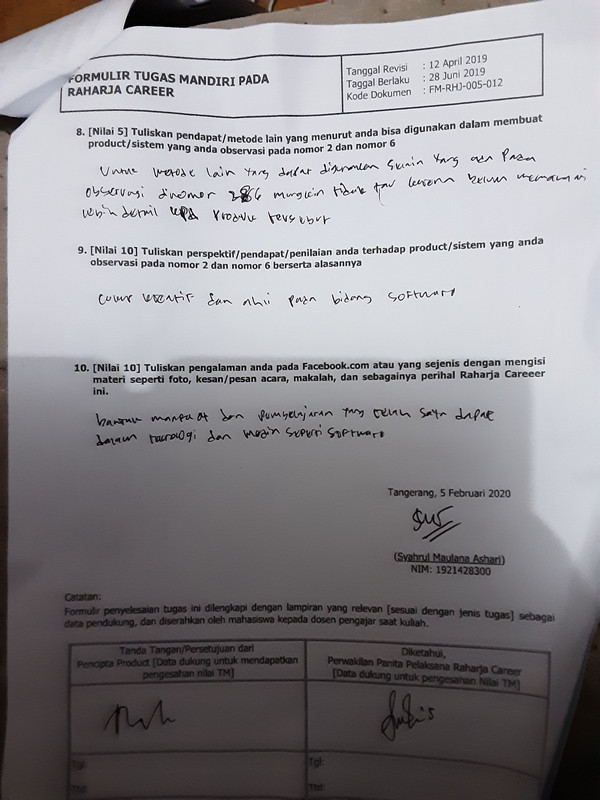 FORMULIR TUGAS MANDIRI PADA
RAHARJA CAREER
Tanggal Revisi : 12 April 2019
Taggal Berlaku : 28 Juni 2019
Kode Dokumen : FM-RHJ-005-012
8. [Nilai 5] Tuliskan pendapat/metode lain yang menurut anda bisa digunakan dalam membuat
product/sistem yang anda observasi pada nomor 2 dan nomor 6
Untuk metode lain yang dapat digunakan selain yang ada pada
observasi dinomor 2&6 mungkin tidak tau karena belum memahami
lebih detail produk tersebut
9. [Nilai 10] Tuliskan perspektif/pendapat/penilaian anda terhadap product/sistem yang anda
observasi pada nomor 2 dan nomor 6 berserta alasannya
cukup kreatif dan ahli pada bidang software
10. [Nilai 10] Tuliskan pengalaman anda pada Facebook.com atau yang sejenis dengan mengisi
materi seperti foto, kesan/pesan acara, makalah, dan sebagainya perihal Raharja Careeer
ini.
banyak manfaat dan pembelajaran yang telah saya dapat
dalam teknologi dan mesin seperti software
Tangerang, 5 Februari 2020
(Syahrul Maulana Ashari)
NIM: 1921428300
Catatan:
Formulir penyelesaian tugas ini dilengkapi dengan lampiran yang relevan [sesuai dengan jenis tugas] sebagai
data pendukung, dan diserahkan oleh mahasiswa kepada dosen pengajar saat kuliah.
Tanda Tangan/Persetujuan dari
Pencipta Product [Data dukung untuk mendapatkan
pengesahan nilai TM]
Diketahui,
Perwakilan Panita Pelaksana Raharja Career
[Data dukung untuk pengesahan Nilai TM]
Tgl:
Tgl:
Ttd:
Ttd: